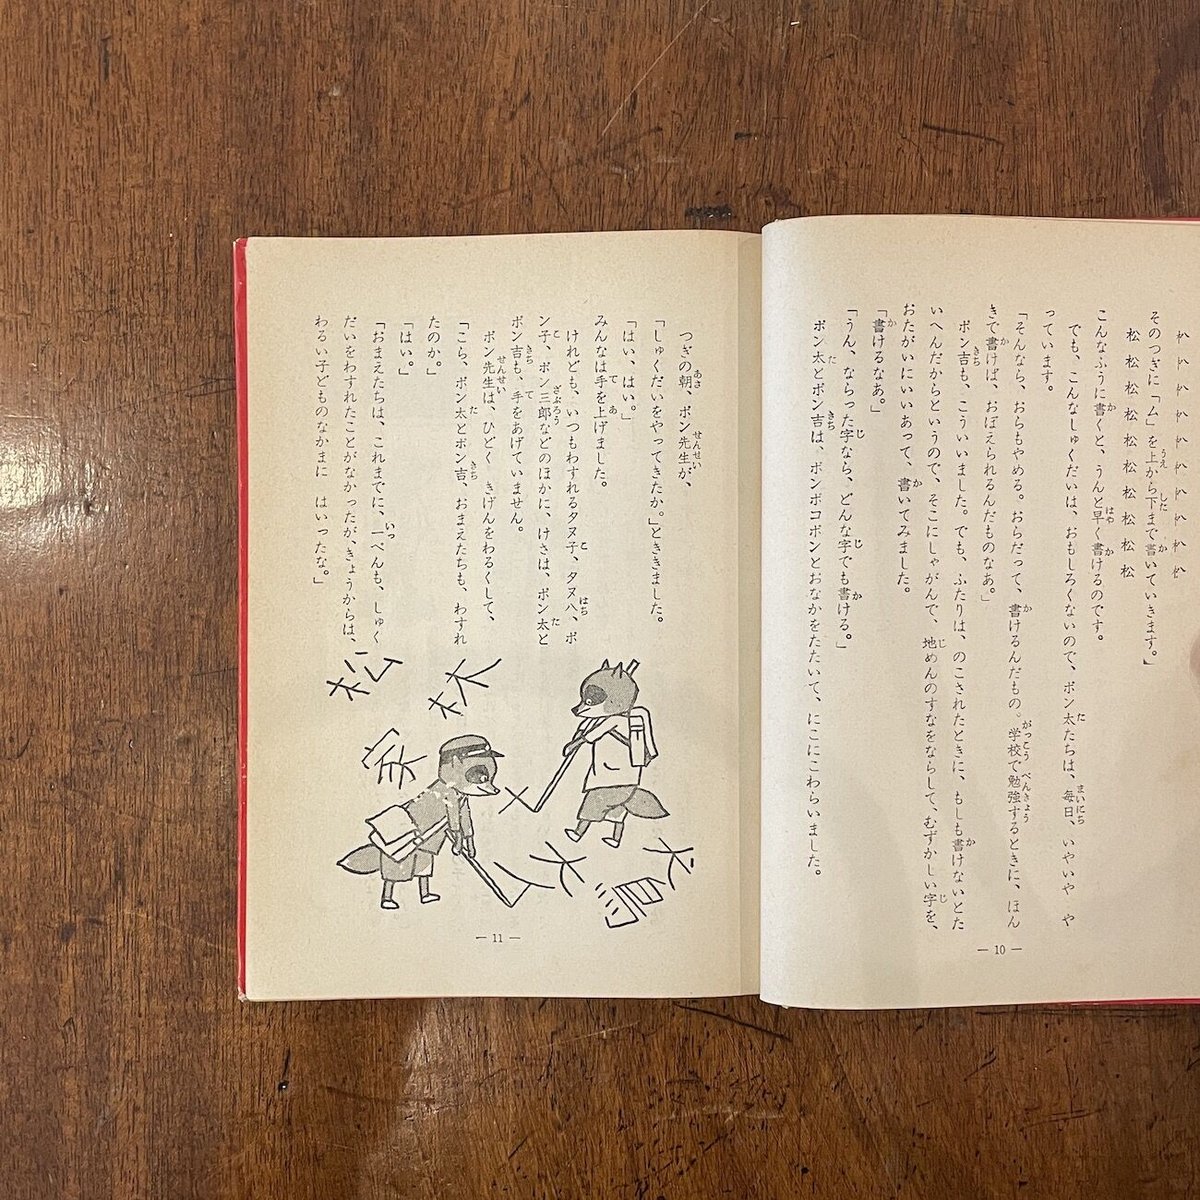 そのつぎに「ム」を上から下まで書いていきます。」
松 松 松 松 松 松 松 松 松 松
こんなふうに書くと、うんと早く書けるのです。
でも、こんなしゅくだいは、おもしろくないので、ポン太たちは、毎日、いやいや や
っています。
「そんなら、おらもやめる。おらだって、書けるんだもの。学校で勉強するときに、ほん
きで書けば、おぼえられるんだものなあ。」
ポン吉も、こういいました。でも、ふたりは、のこされたときに、もしも書けないとた
いへんだからというので、そこにしゃがんで、地めんのすなをならして、むずかしい字を、
おたがいにいいあって、書いてみました。
「書けるなあ。」
「うん、ならった字なら、どんな字でも書ける。」
ポン太とポン吉は、ポンポコポンとおなかをたたいて、にこにこわらいました。
— 10 —
つぎの朝、ポン先生が、
「しゅくだいをやってきたか。」とききました。
「はい、はい。」
みんなは手を上げました。
けれども、いつもわすれるタヌ子、タヌ八、ポ
ン子、ポン三郎などのほかに、けさは、ポン太と
ポン吉も、手をあげていません。
ポン先生は、ひどく きげんをわるくして、
「こら、ポン太とポン吉、おまえたちも、わすれ
たのか。」
「はい。」
「おまえたちは、これまでに、一ぺんも、しゅく
だいをわすれたことがなかったが、きょうからは、
わるい子どものなかまに はいったな。」
犬
鳥
林
松
家
— 11 —